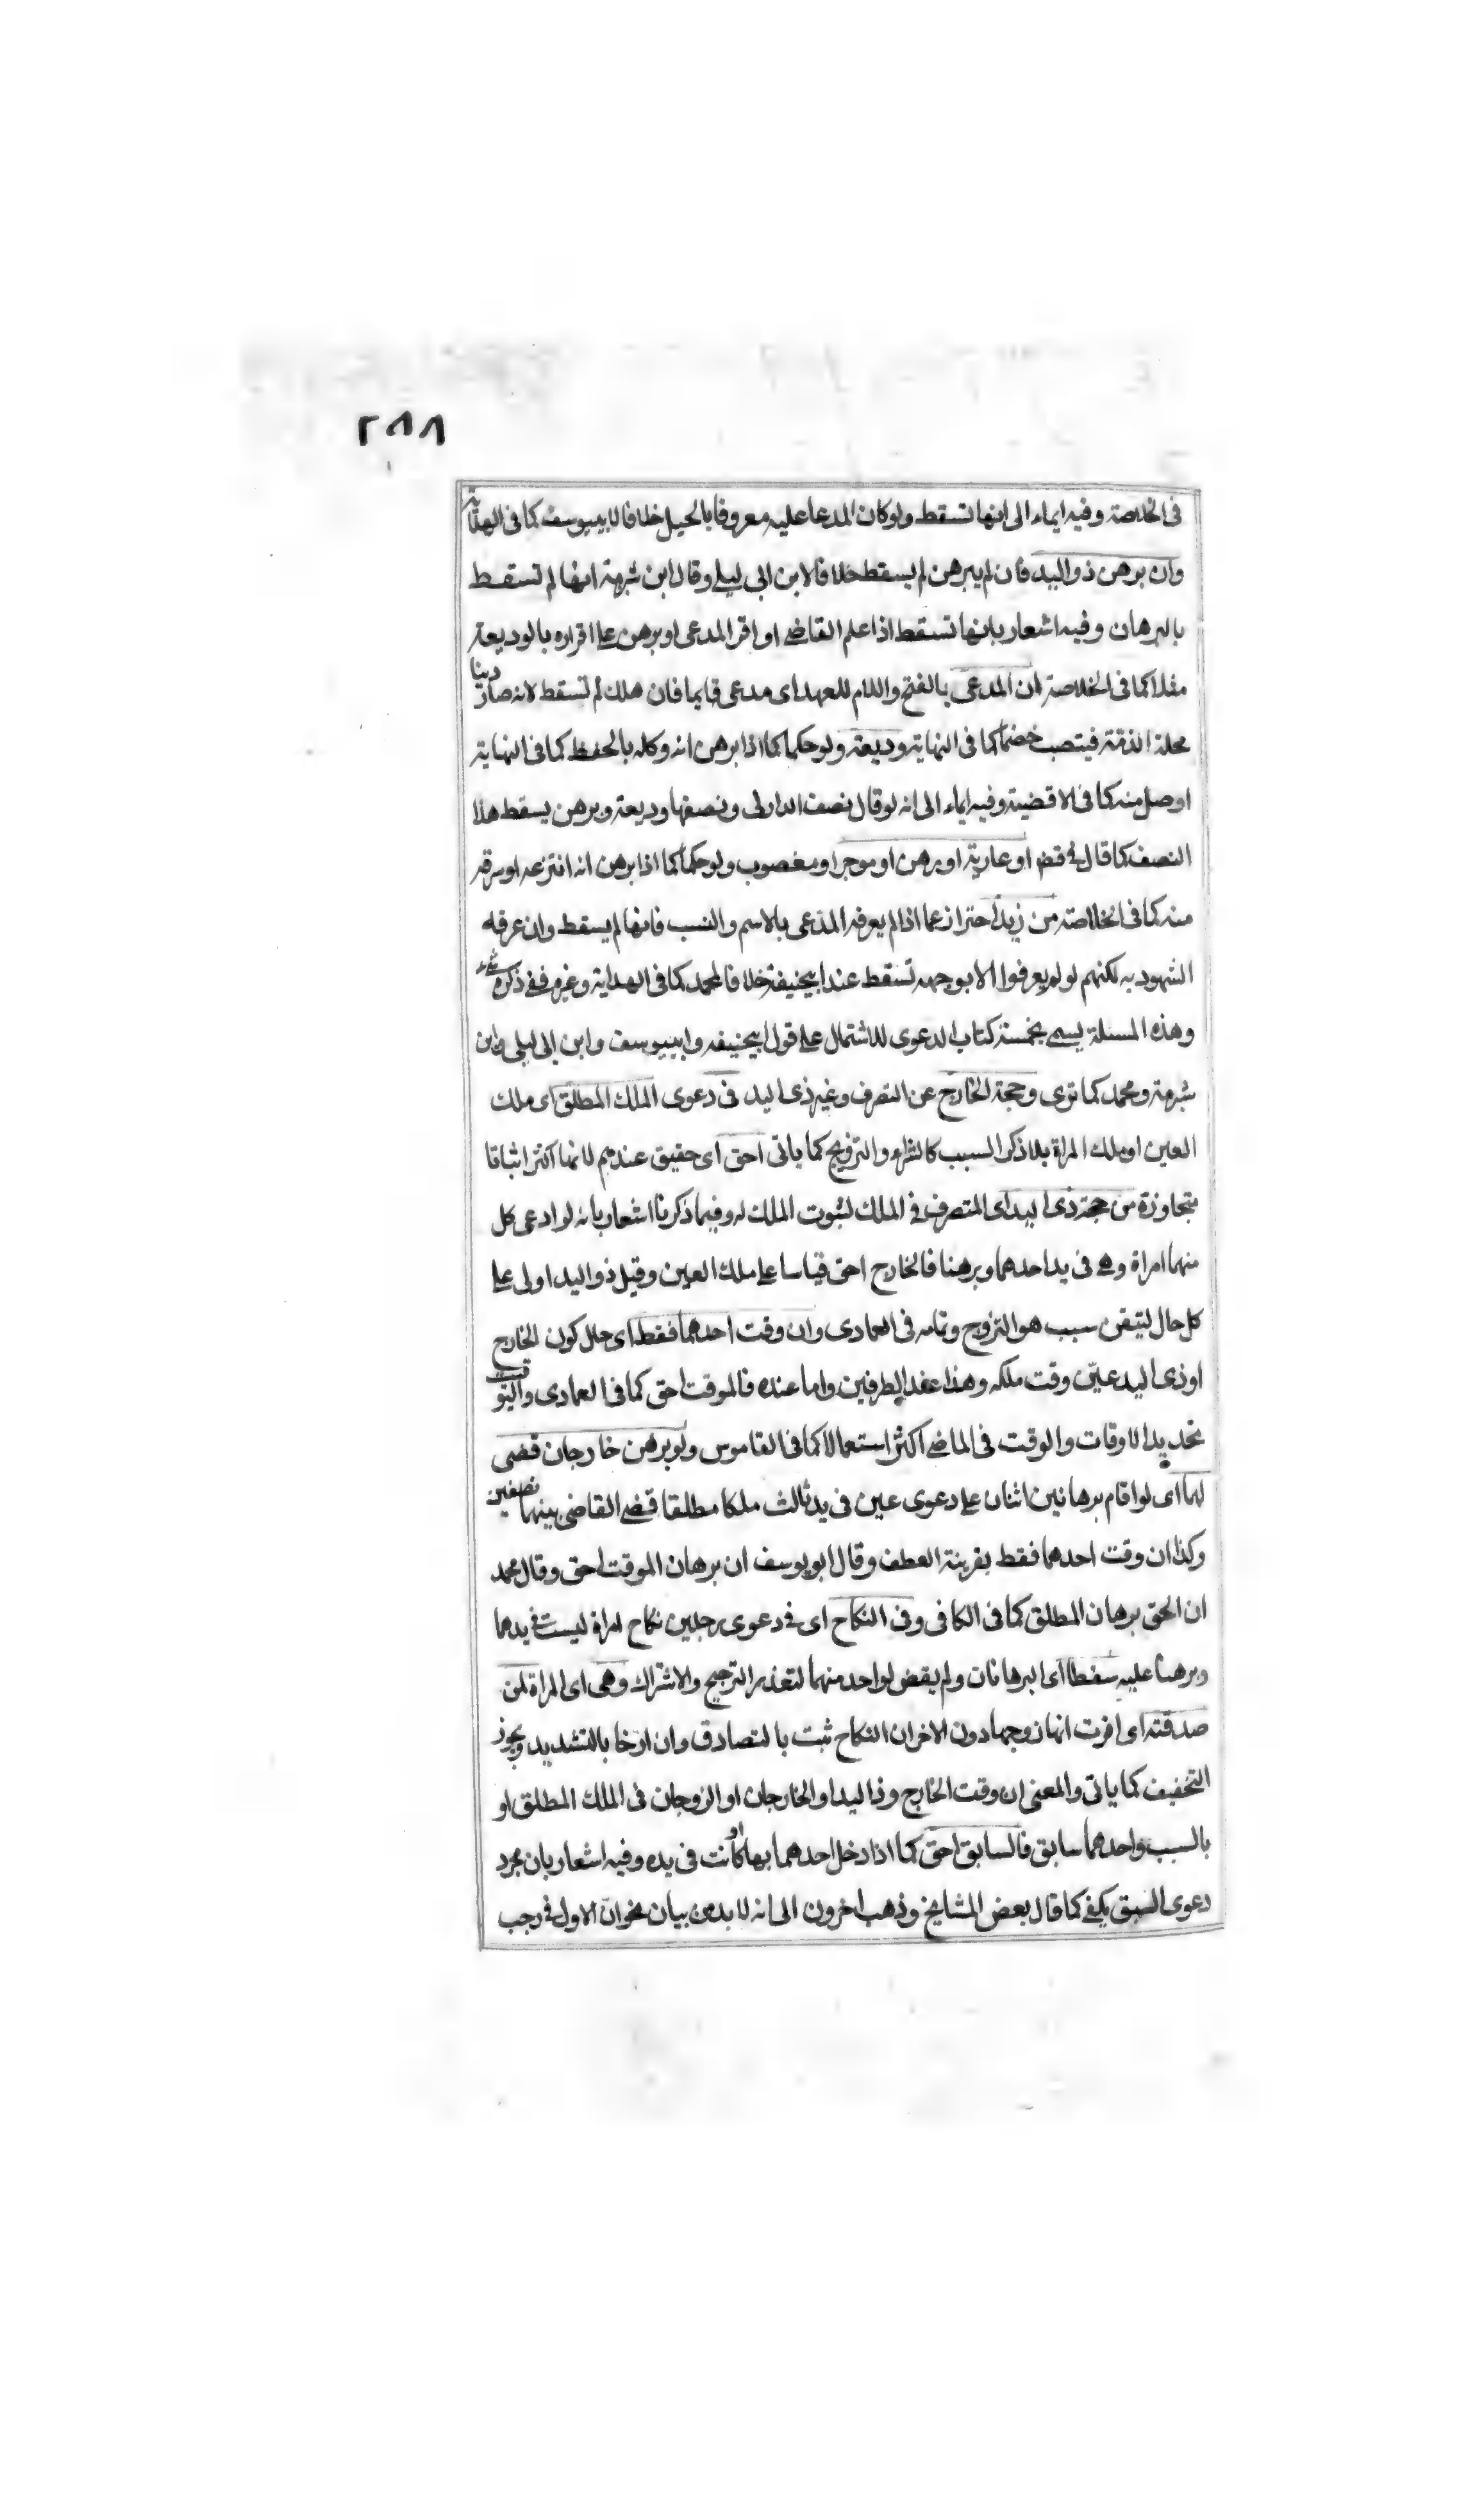 ٢٨٨
فى الخلاصة وفيه ايماء الى انها تسقط ولو كان المدعا عليه معروفا بالحيل خلافا لابييوسف كما فى الهداية
وان برهن ذو اليد فان لم يبرهن لم يسقط خلافا لابن ابى ليلى وقال ابن شبرمة انها لم تسقط
بالبرهان وفيه اشعار بانها تسقط اذا علم القاضے او اقر المدعى او برهن على اقراره بالوديعة
مثلا كما فى الخلاصة ان المدعى بالفتح واللام للعهد اى مدعى قايما فان هلك لم تسقط لانه صار دينا
محلة الذمة فينتصب خصما كما فى النهاية وديعة ولو حكما كما اذا برهن انه وكله بالحفظ كما فى النهاية
او صل منه كما فى الاقضية وفيه ايماء الى انه لو قال نصف الدار لى ونصفها وديعة وبرهن يسقط هذا
النصف كما قال او عارية او برهن او موجر او مغصوب ولو حكما كما اذا برهن انه انتزعه او سرقه
منه كما فى الخلاصة من زيد احتراز عما اذا لم يعرفه المدعى بالاسم والنسب فانها لم يسقط وان عرفه
الشهود به لكنهم لو لم يعرفوا الا بوجهه تسقط عند ابيحنيفة خلافا لمحمد كما فى الهداية وغيره ففے ذكره
وهذه المسئلة يسمى بخمسة كتاب الدعوى للاشتمال على قول ابيحنيفه وابييوسف وابن ابى ليلى وابن
شبرمة ومحمد كما ترى وحجة الخارج عن التصرف وغير ذى اليد فى دعوى الملك المطلق اى ملك
العين او ملك المراة بلا ذكر السبب كالشراء والتزويج كما ياتى احق اى حقيق عندهم لانها اكثر اثباتا
متجاوزة من حجة ذى اليد اى المتصرف فى الملك لثبوت الملك له وفيما ذكرنا اشعار بانه لو ادعى كل
منهما امراة وهے فى يد احدهما وبرهنا فالخارج احق قياسا على ملك العين وقيل ذو اليد اولى على
كل حال لتيقن سبب هو التزوج وتمامه فى العمادى وان وقت احدهما فقط اى حال كون الخارج
او ذى اليد عيّن وقت ملكه وهذا عند الطرفين واما عنده فالموقت احق كما فى العمادى والتوقيت
تحديد الاوقات والوقت فى الماضے اكثر استعمالا كما فى القاموس ولو برهن خارجان قضى
لهما اى لو اقام برهانين اثنان على دعوى عين فى يد ثالث ملكا مطلقا قضے القاضى بينهما نصفين
وكذا ان وقت احدهما فقط بقرينة العطف وقال ابويوسف ان برهان الموقت احق وقال محمد
ان الحق برهان المطلق كما فى الكافى وفى النكاح اى فے دعوى رجلين نكاح امراة ليست فے يدهما
وبرهنا عليه سقطا اى البرهانان ولم يقض لواحد منهما لتعذر الترجيح والاشتراك وهى اى المراة لمن
صدقته اى اقرت انها زوجها دون الاخر ان النكاح ثبت بالتصادق وان ارخا بالتشديد ويجوز
التخفيف كما ياتى والمعنى ان وقت الخارج وذا اليد او الخارجان او الزوجان فى الملك المطلق او
بالسبب واحدهما سابق فالسابق احق كما اذا دخل احدهما بها او كانت فى يده وفيه اشعار بان مجرد
دعوى السبق يكفے كما قال بعض المشايخ وذهب اخرون الى انه لا بد من بيان نحو ان الاول فے رجب